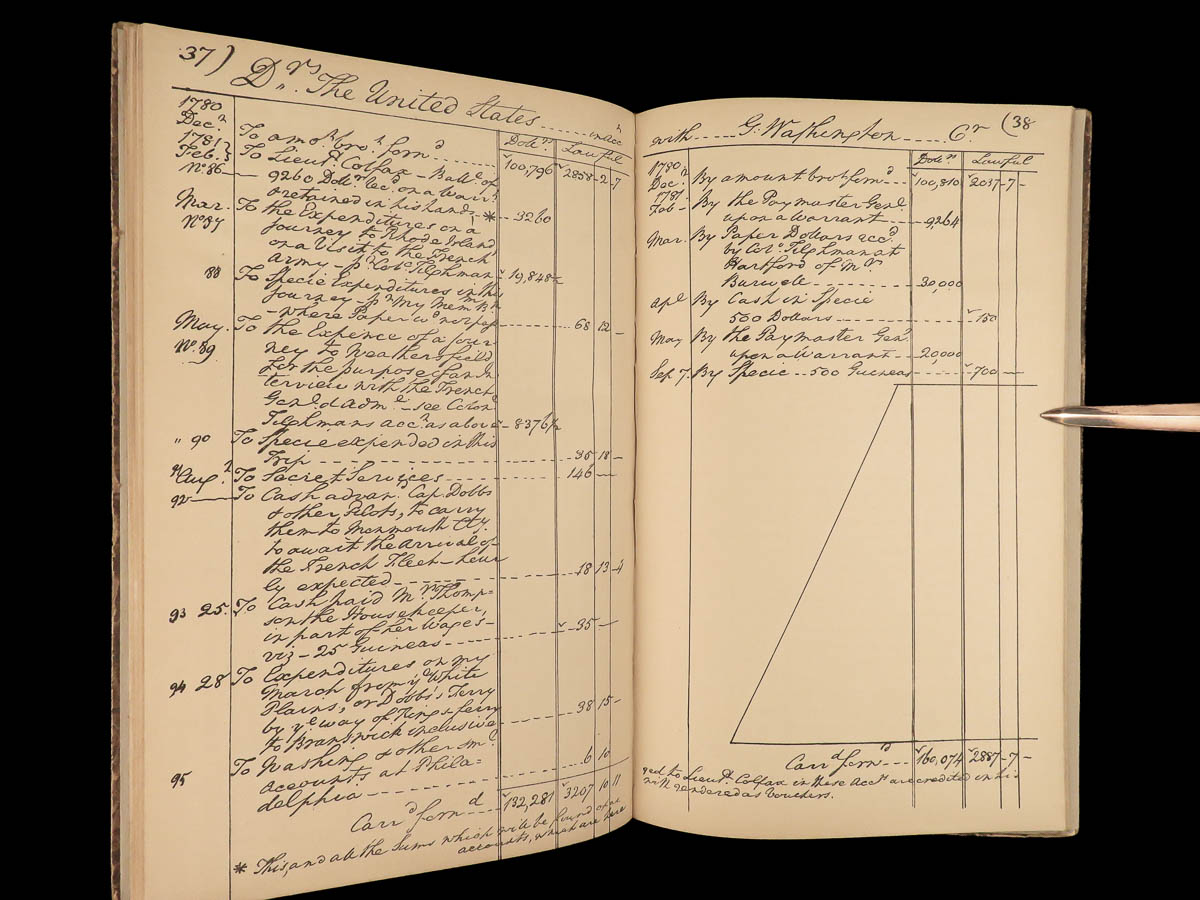 37)
Drs. The United States ..... in Acct
Dollrs Lawful
1780
Decr To amot brot forwd ..... 100,796 2858-2-7
1781
Feb. To Lieut. Colfax - Balle of
No. 86 9260 Dollrs recd on a Warrt
retained in his hands * - 3260
Mar. To the Expenditures on a
No. 87 journey to Rhode Island
on a Visit to the French
army - pr Colo Tilghman 19,848½
88 To Specie Expenditures in this
Journey - pr My Memm Bk
- where Paper wd not pass ..... 68 12 -
May. To the Expence of a jour-
No. 89 ney to Weathersfield
for the purpose of an In-
terview with the French
Genl & Adml - see Colone
Tilghmans acct as above - 8376½
" 90 To Specie expended in this
Trip ..... 35 18 -
91 Aug. 2 To Secret Services ..... 146 —
92 — To Cash advand Cap. Dobbs
& other Pilots, to carry
them to Monmouth Cty.
to await the arrival of
the French Fleet - hour
ly expected ..... 18 13 4
93 25. To Cash paid Mrs Thomp=
son the Housekeeper,
in part of her Wages -
viz - 25 Guineas ..... 35 —
94 28 To Expenditures on my
March from ye White
Plains, or Dobbs's Ferry
by ye way of Kings ferry
to Brunswick inclusive 38 15 -
95 To Washing & other smal
accounts at Phila-
delphia ..... 6 10
Carrd forwd ..... 132,281 3207 10 11
* This, and all the Sums which will be found
accounts, which are here
(38
with ..... G. Washington ..... Cr
Dollrs Lawful
1780
Decr By amount brot forwd - 100,810 2037-7-
1781
Feb - By the Paymaster Genl
upon a Warrant - 9,264
Mar. By Paper Dollars recd
by Colo Tilghman at
Hartford of Mr
Barwell ..... 30,000
Apl By Cash in Specie
500 Dollars ..... 150
May By the Paymaster Genl
upon a Warrant - 20,000
Sep 7. By Specie .. 500 Guineas ..... 700 —
Carrd forwd ..... 160,074 2887-7-
ged to Lieut. Colfax in these Accts are credited in his
with rendered as Vouchers.